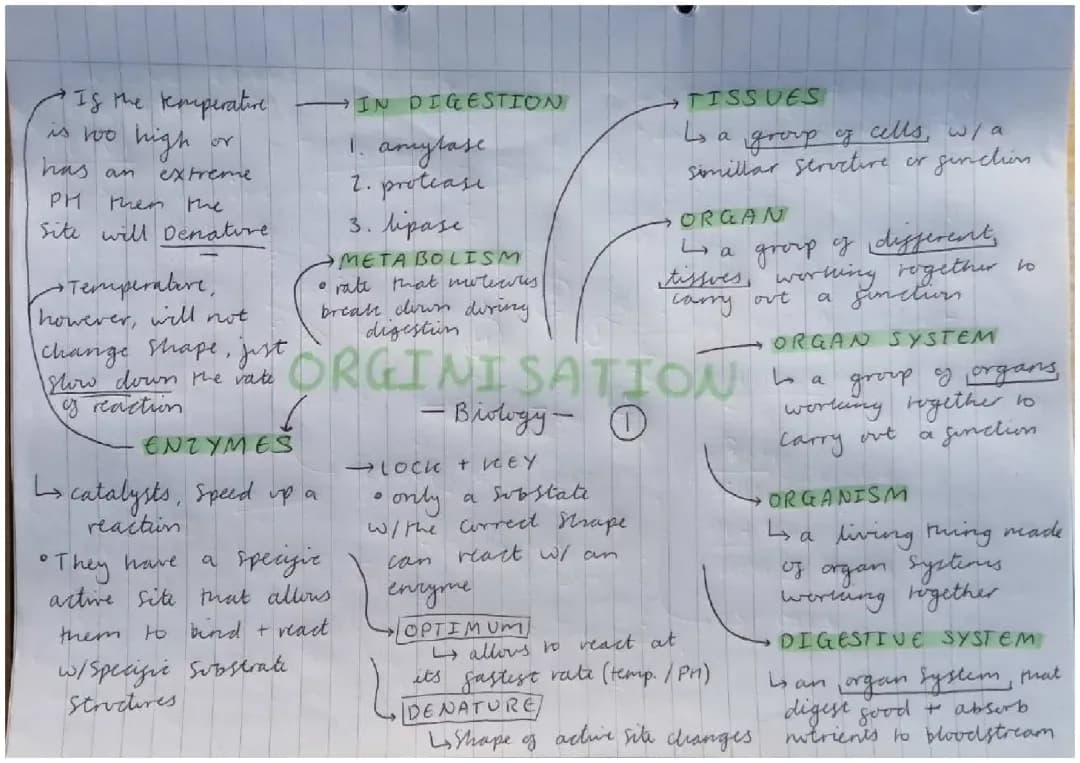 ORGINISATION
- Biology -
1
TISSUES
↳ a group of cells, w/ a
simillar structure or function
ORGAN
↳ a group of different
tissues, working together to
carry out a function
ORGAN SYSTEM
↳ a group of organs
working together to
carry out a function
ORGANISM
↳ a living thing made
of organ systems
working together
DIGESTIVE SYSTEM
↳ an organ system, that
digest food + absorb
nutrients to bloodstream
METABOLISM
• rate that molecules
break down during
digestion
ENZYMES
↳ catalysts, speed up a
reaction
• They have a specific
active site that allows
them to bind + react
w/specific substrate
structures
→ If the temperature
is too high or
has an extreme
PH then the
site will Denature
→ Temperature,
however, will not
change shape, just
slow down the rate
of reaction
→ IN DIGESTION
1. amylase
2. protease
3. lipase
→ LOCK + KEY
• only a substate
w/the correct shape
can react w/ an
enzyme
OPTIMUM
↳ allows to react at
its fastest rate (temp. / PH)
DENATURE
↳ Shape of active site changes